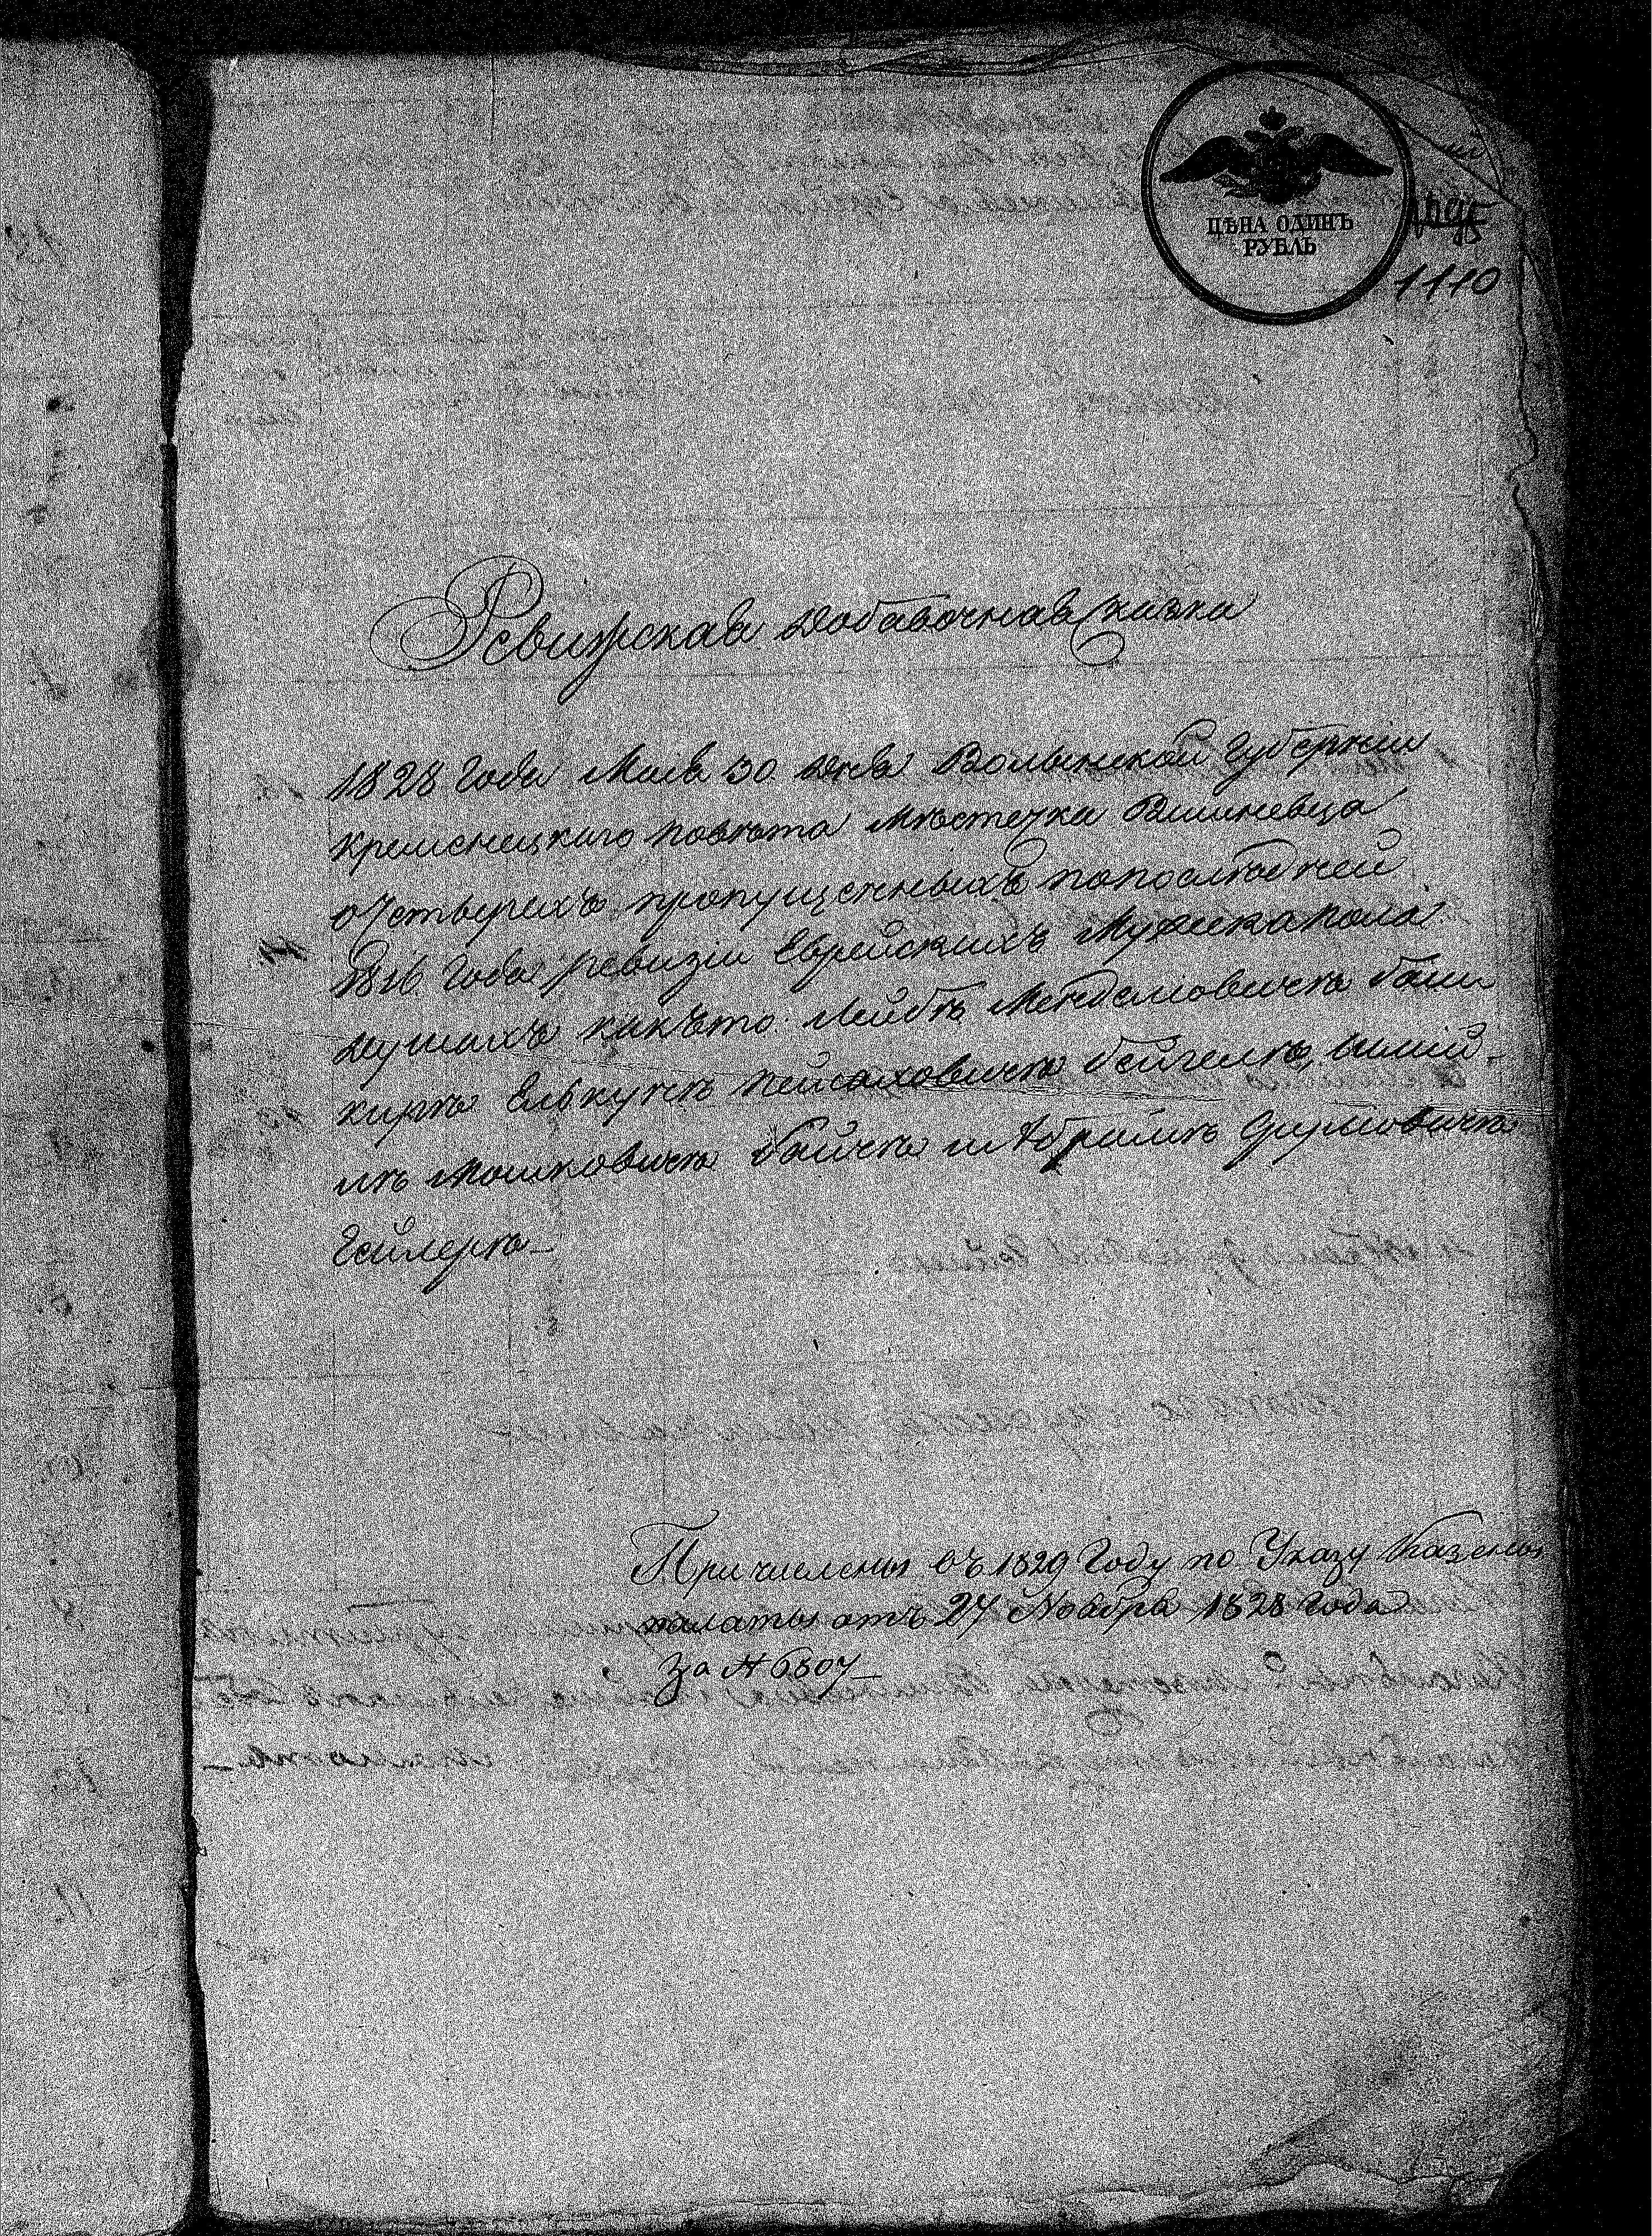 ЦѢНА ОДИНЪ
РУБЛЬ
1110
Ревижская добавочная сказка
1828 Года Маія 30 дня Волынской Губерніи
Кременецкаго повѣта Мѣстечка Вишневца
о Четырехъ пропущенныхъ попослѣдней
1816 Года ревизіи Еврейскихъ Мужеска пола
душахъ какъто: Лейбѣ Менделіовичѣ
Елькунѣ Пейсаховичѣ Бейгелѣ,
Мошковичѣ и Абрамѣ Сруліовичѣ
Гейлерѣ
Причислены въ 1829 Году по Указу Казенной
палаты отъ 27 Ноября 1828 Года
За № 6807